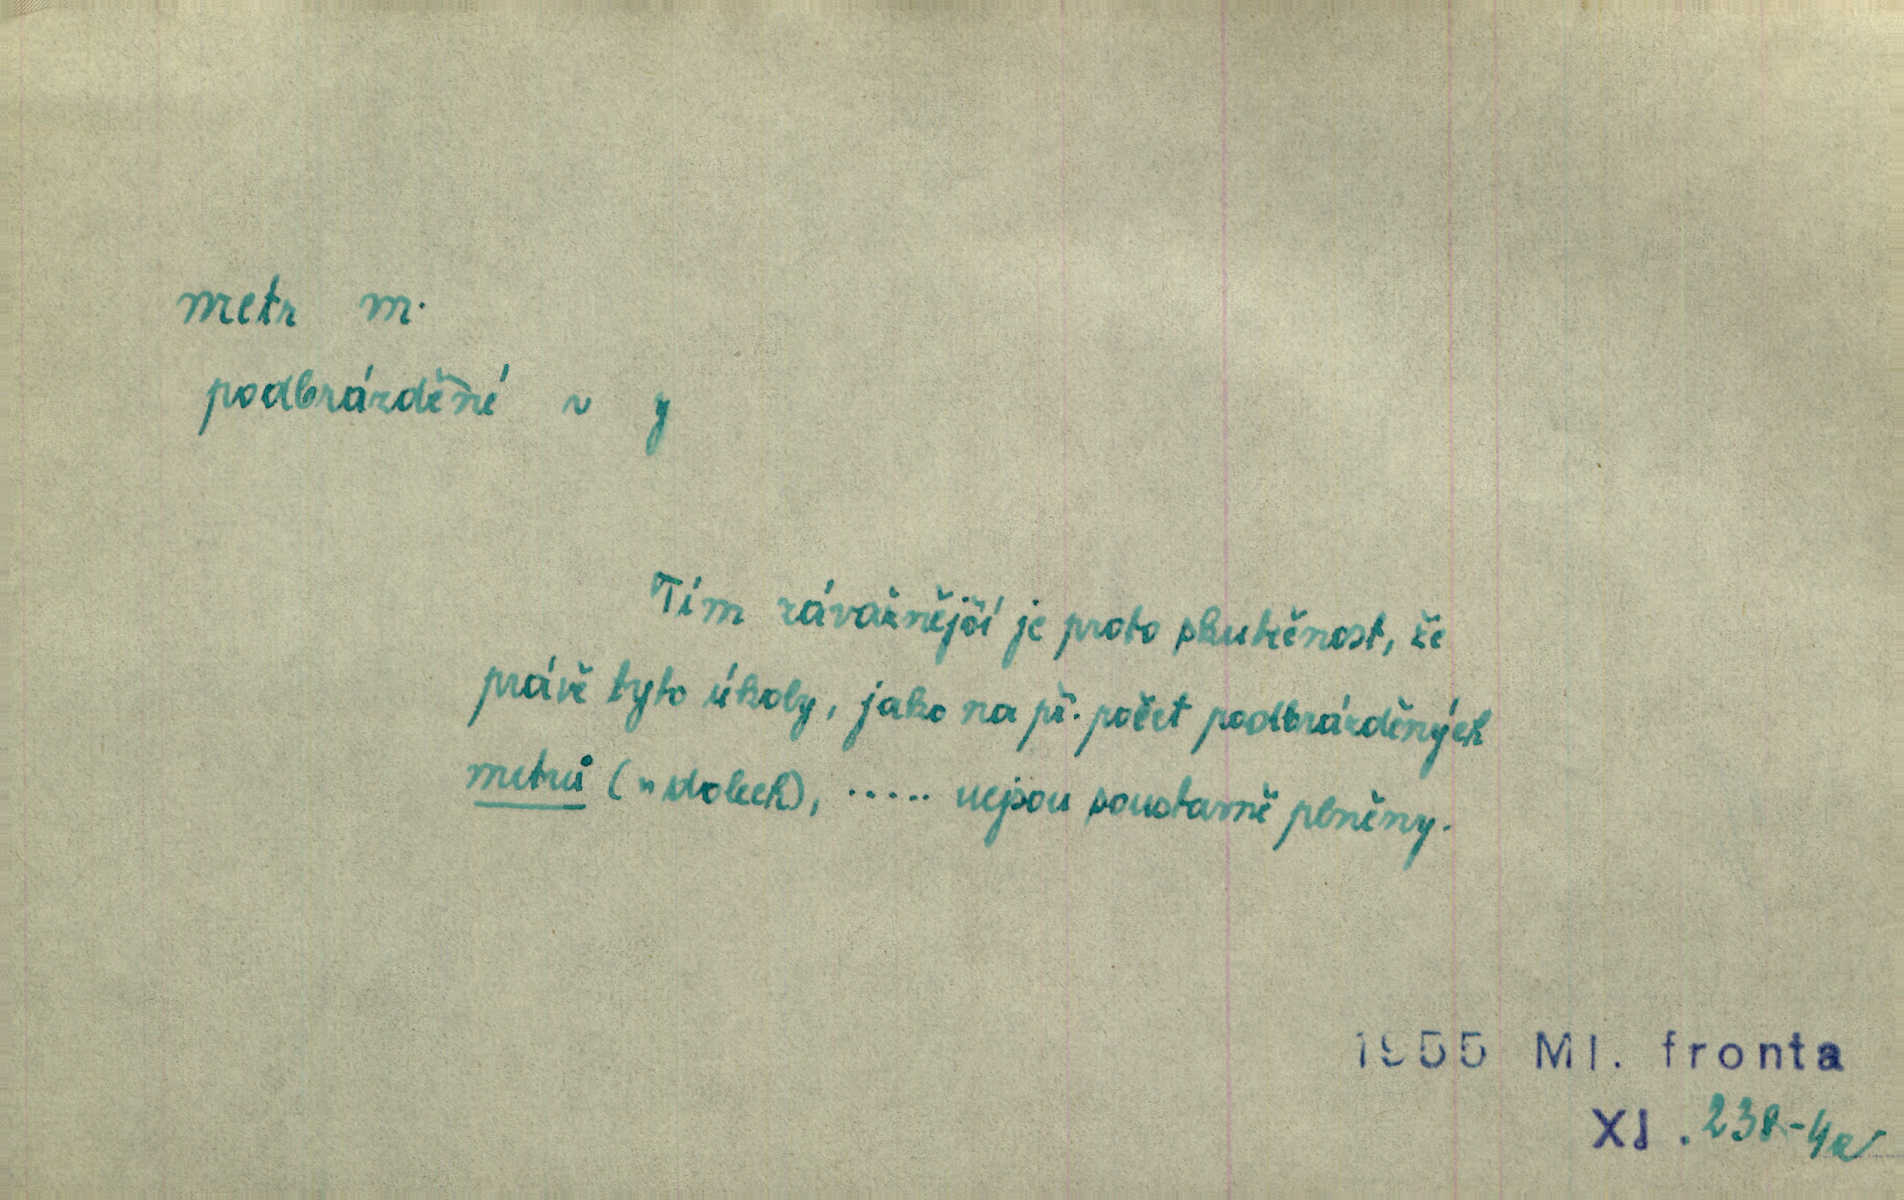 metr m.
podbrázděné v y
Tím závažnější je proto skutečnost, že
právě tyto úkoly, jako na př. počet podbrázděných
metrů (v dolech), ..... nejsou soustavně plněny.
1955 Ml. fronta
XI. 238-4a